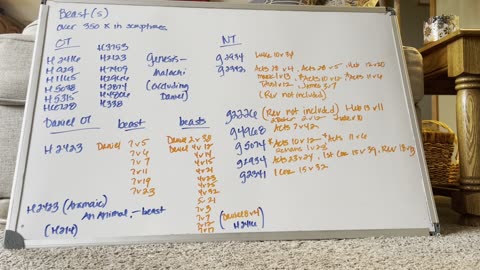 Beast(s)
over 350 x in scriptures
OT
H2416
H929
H1165
H5038
H5315
H6728
H3753
H2123
H7409
H2966
H2874
H338
Genesis-
Malachi
(excluding
Daniel)
NT
g2934 Luke 10 v 34
g2342 Acts 28 v 4, Acts 28 v 5, Heb 12 v 20
Titus 1 v 12, James 3 v 7
(Rev not included)
g2226 (Rev not included) Heb 13 v 11
g4968 Acts 7 v 42
g5074 *Acts 10 v 12 - *Acts 11 v 6
Romans 1 v 23
g2934 Acts 23 v 24, 1st Cor 15 v 39, Rev 18 v 13
g2341 1 Cor 15 v 32
Daniel OT
beast
beast
H2423
Daniel 7 v 5
7 v 6
7 v 7
7 v 11
7 v 19
7 v 23
Daniel 2 v 38
Daniel 4 v 12
4 v 14
4 v 15
4 v 21
4 v 23
4 v 25
4 v 32
5 - 21
7 v 3
7 v 7
7 v 12
7 v 17
(Daniel 8 v 4)
H2416
H2423 (Aramaic)
An Animal, - beast
(H214)